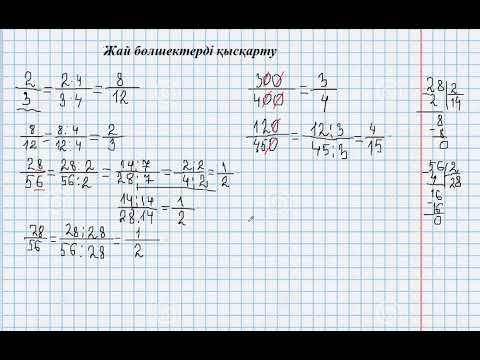 Жай бөлшектерді қысқарту
2/3 = 2·4/3·4 = 8/12
8/12 = 8:4/12:4 = 2/3
28/56 = 28:2/56:2 = 14:7/28:7 = 2:2/4:2 = 1/2
14:14/28:14 = 1/2
28/56 = 28:28/56:28 = 1/2
300/400 = 3/4
120/450 = 12:3/45:3 = 4/15
28 | 2
2 | 14
8
-8
0
56 | 2
4 | 28
16
-16
0